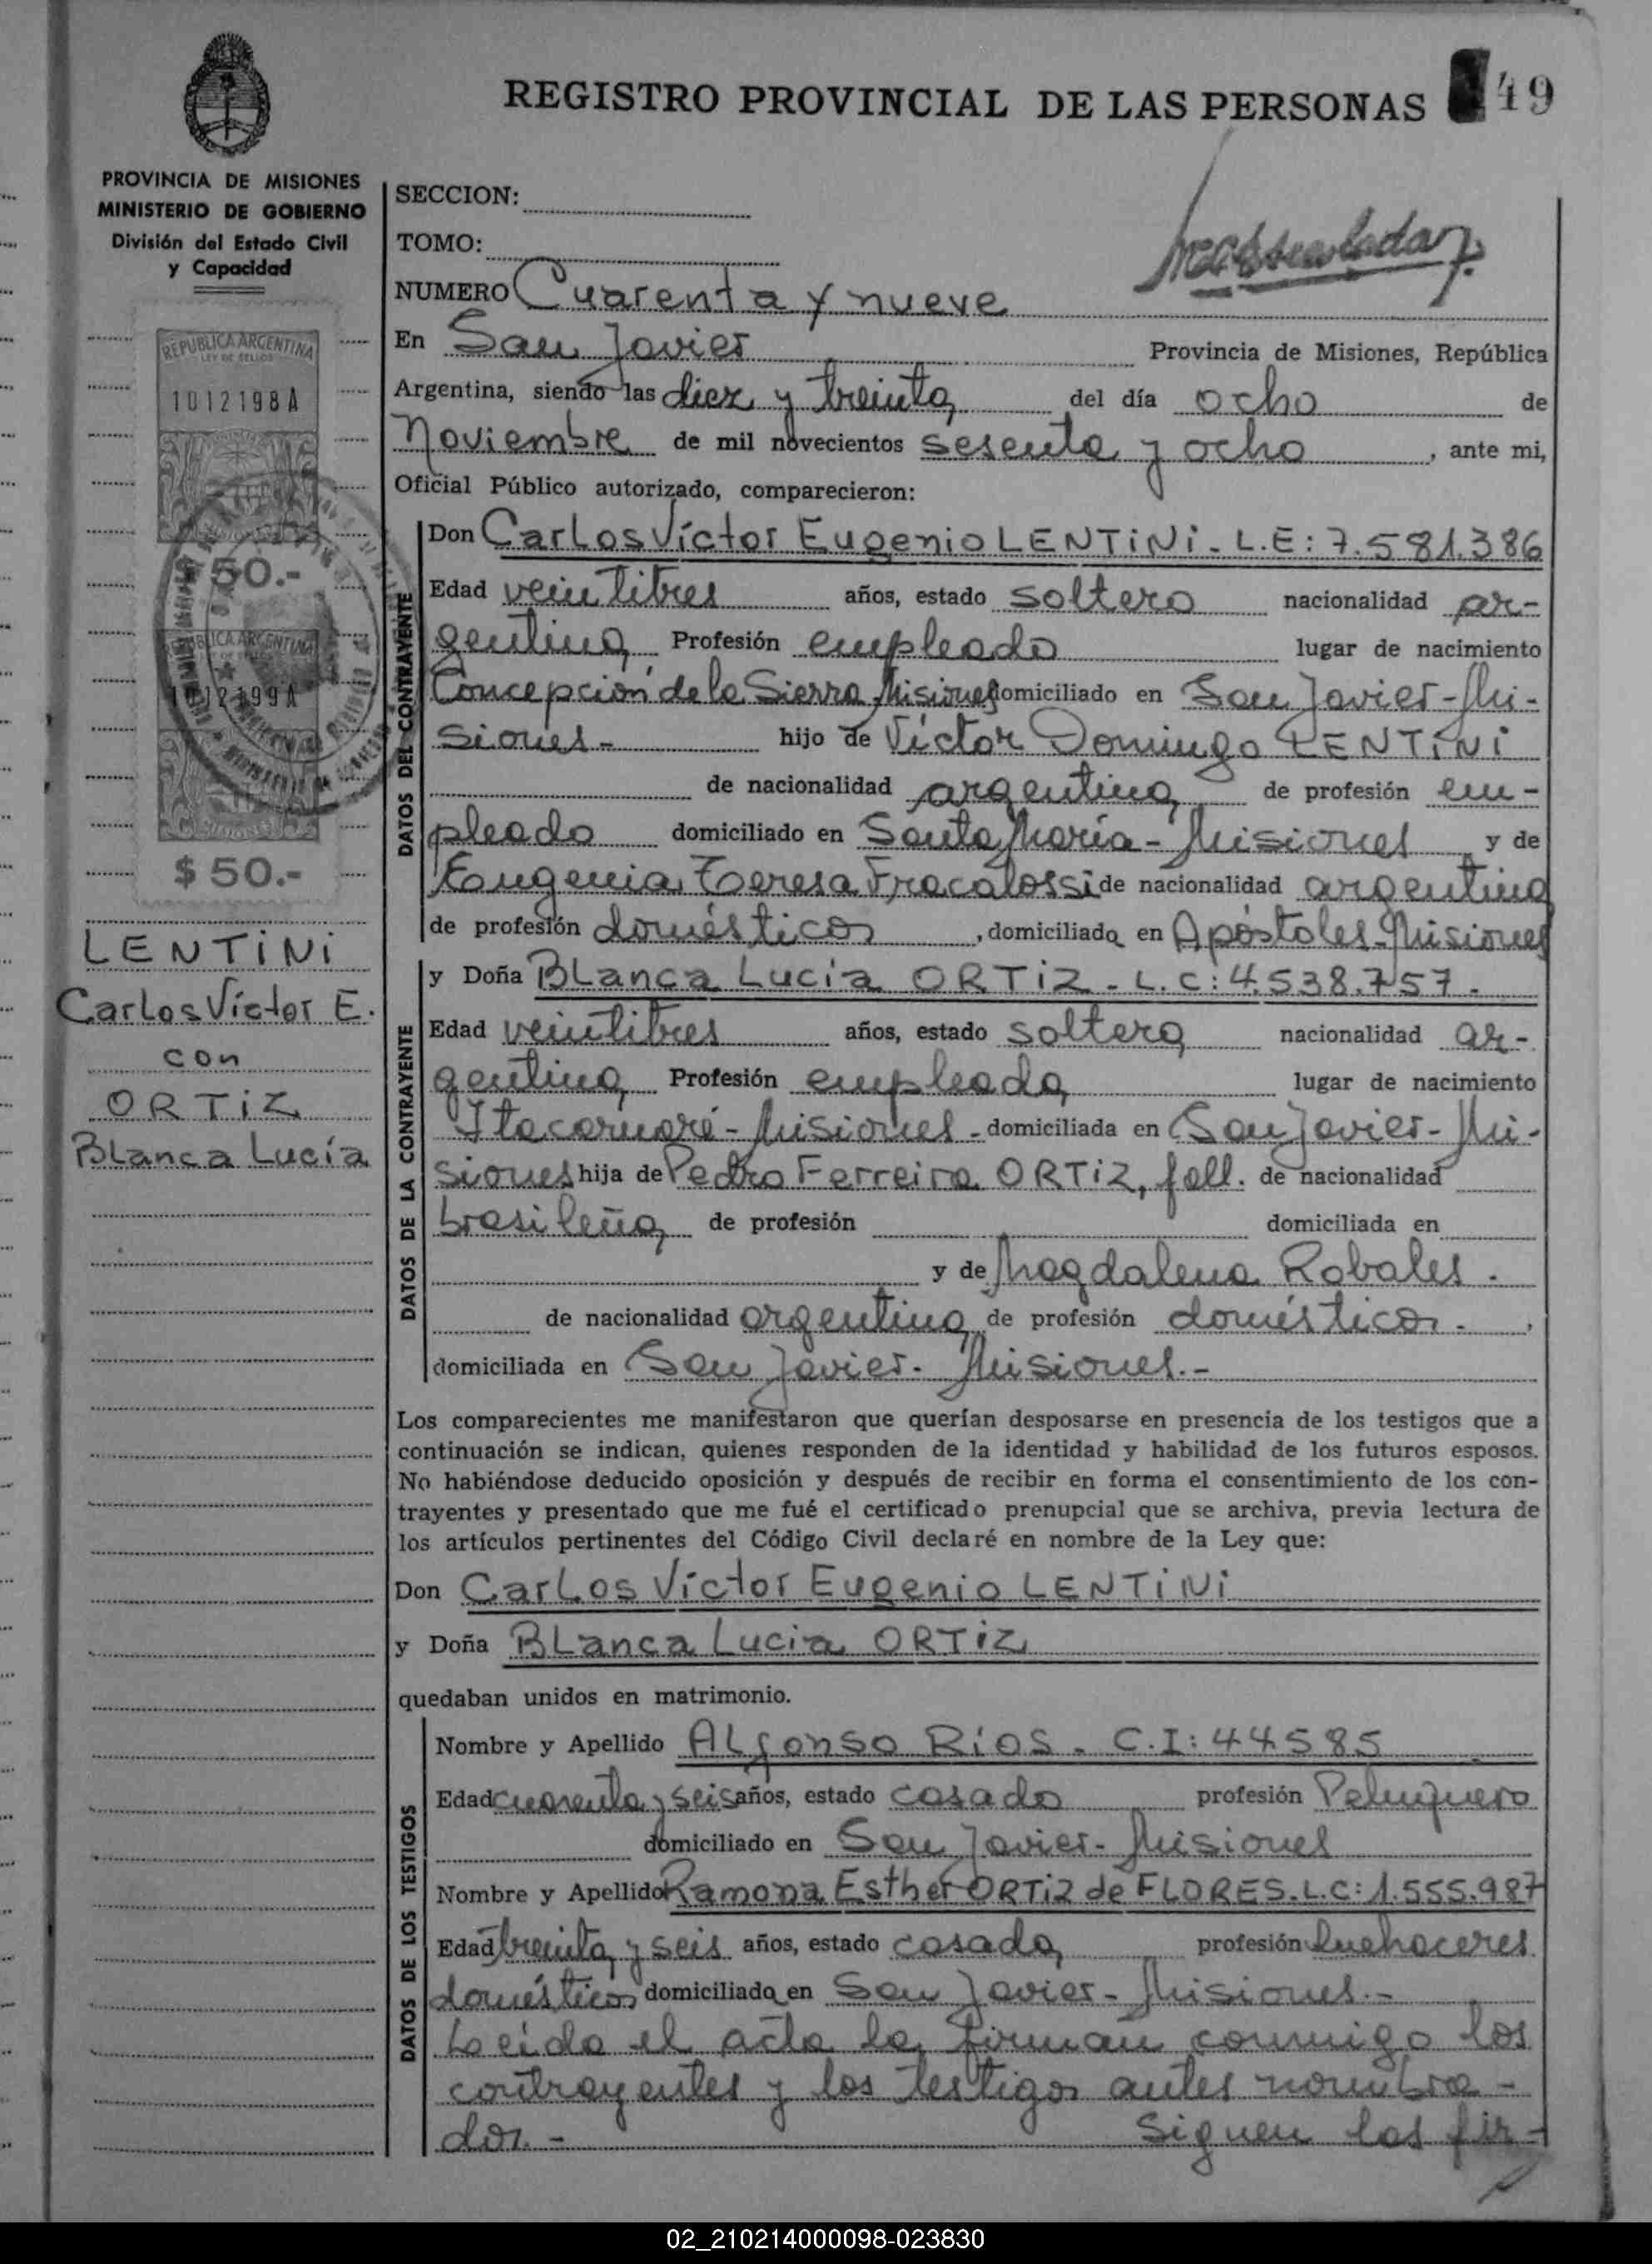 REGISTRO PROVINCIAL DE LAS PERSONAS 49
PROVINCIA DE MISIONES
MINISTERIO DE GOBIERNO
División del Estado Civil
y Capacidad
REPUBLICA ARGENTINA
LEY DE SELLOS
1012198A
$50.-
1012199A
$50.-
LENTINI
Carlos Víctor E.
con
ORTIZ
Blanca Lucía
SECCION:
TOMO:
NUMERO Cuarenta y nueve
En San Javier Provincia de Misiones, República
Argentina, siendo las diez y treinta del día ocho de
Noviembre de mil novecientos sesenta y ocho, ante mi,
Oficial Público autorizado, comparecieron:
DATOS DEL CONTRAYENTE
Don Carlos Víctor Eugenio LENTINI - L.E: 7.581.386
Edad veintitres años, estado soltero nacionalidad ar-
gentina Profesión empleado lugar de nacimiento
Concepción de la Sierra Misiones domiciliado en San Javier - Mi-
siones - hijo de Víctor Domingo LENTINI
de nacionalidad argentina de profesión em-
pleado domiciliado en Santa María - Misiones y de
Eugenia Teresa Fracalossi de nacionalidad argentina
de profesión domésticos, domiciliada en Apóstoles - Misiones
DATOS DE LA CONTRAYENTE
y Doña Blanca Lucia ORTIZ - L.C: 4.538.757 -
Edad veintitres años, estado soltera nacionalidad ar-
gentina Profesión empleada lugar de nacimiento
Itacaruaré - Misiones - domiciliada en San Javier - Mi-
siones hija de Pedro Ferreira ORTIZ, fall. de nacionalidad
brasileña de profesión domiciliada en
y de Magdalena Robales -
de nacionalidad argentina de profesión domésticos - ,
domiciliada en San Javier - Misiones. -
Los comparecientes me manifestaron que querían desposarse en presencia de los testigos que a
continuación se indican, quienes responden de la identidad y habilidad de los futuros esposos.
No habiéndose deducido oposición y después de recibir en forma el consentimiento de los con-
trayentes y presentado que me fué el certificado prenupcial que se archiva, previa lectura de
los artículos pertinentes del Código Civil declaré en nombre de la Ley que:
Don Carlos Víctor Eugenio LENTINI
y Doña Blanca Lucia ORTIZ
quedaban unidos en matrimonio.
DATOS DE LOS TESTIGOS
Nombre y Apellido Alfonso Ríos - C.I: 44585
Edad cuarenta y seis años, estado casado profesión Peluquero
domiciliado en San Javier - Misiones
Nombre y Apellido Ramona Esther ORTIZ de FLORES - L.C: 1.555.987
Edad treinta y seis años, estado casada profesión Quehaceres
domésticos domiciliada en San Javier - Misiones. -
Leída el acta la firman conmigo los
contrayentes y los testigos antes nombra-
dos. - Siguen las fir-
02_210214000098-023830